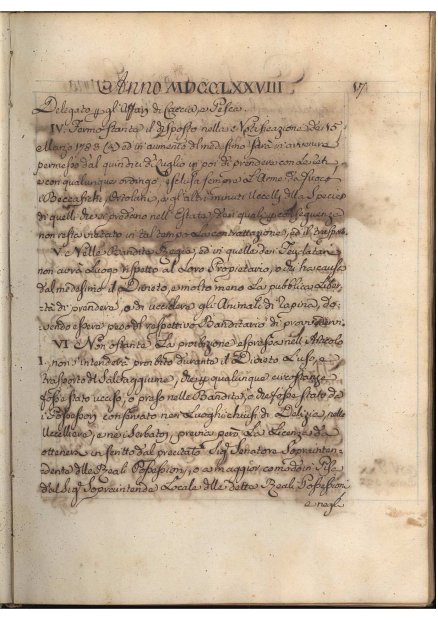 Anno MDCCLXXVIII 17
Delegato gl'Affari di Caccia, e Pesca.
IV. Fermo stante il disposto nella Notificazione de' 15
Marzo ed in aumento del med.simo sarà in avvenire
permesso dal quindici di Luglio in poi di prendere con le reti,
e con qualunque ordingo, escluse sempre l'Arme da fuoco
i Beccafichi, Ortolani, e gl'altri minuti Uccelli della Specie
di quelli che si vedono nell'Estate, dei quali per conseguenza
non resta vietato in tal tempo la contrattazione, ed il trasporto.
V. Nelle Bandite Regie, ed in quelle dei Particolari
non avrà luogo rispetto al loro Proprietario, o chi ha causa
dal medesimo il Divieto, e molto meno la pubblica Liber-
tà di prendere, o di uccidere gli Animali di rapina, do-
vendo essere peso del respettivo Banditario di
VI. Non ostante la proibizione espressa nell'Articolo
I. non s'intenderà proibito durante il Divieto l'uso, e
trasporto di Salvaggiume, di qualunque
fosse stato ucciso, o preso nelle Bandite, o che fosse stato da
Possessori conservato nei Luoghi chiusi di Delizia, nelle
Uccelliere, e nei Serbatoj, previa però la Licenza da
ottenersi in scritto dal precitato Sig. Senatore Soprinten-
dente delle Reali Possessioni, o a maggior comodo in
dal Sig. Soprintende Locale delle dette Reali Possessioni
e negli